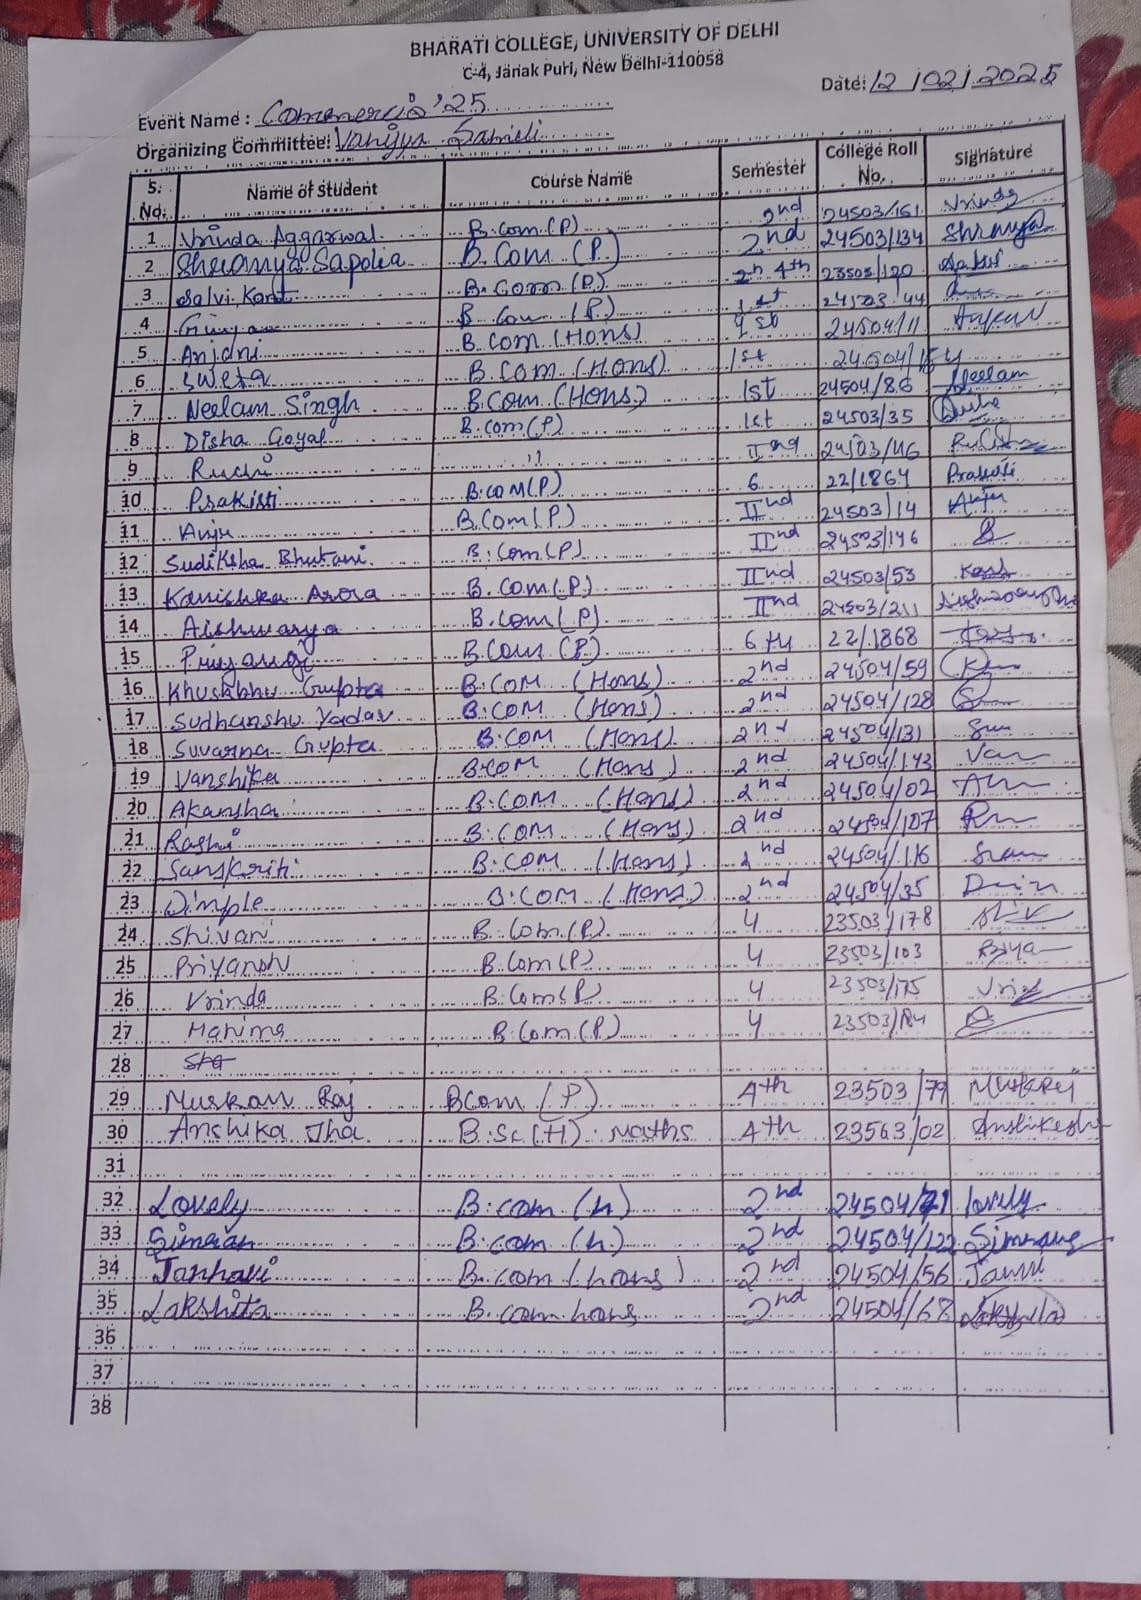 BHARATI COLLEGE, UNIVERSITY OF DELHI
C-4, Janak Puri, New Delhi-110058
Date: 12/02/2025
Event Name : Commercia '25
Organizing Committee: Vanijya Samiti
S. No. Name of Student Course Name Semester College Roll No. Signature
1 Vrinda Aggarwal B.com (P) 2nd 24503/161 Vrinda
2 Shranya Sapolia B.Com (P.) 2nd 24503/134 Shranya
3 Salvi Kant B.Com (P.) 4th 23503/120
4 Gunjan B.Com (P) 1st 24503/44
5 Anjani B.Com (Hons) 1st 24504/11
6 Sweta B.Com (Hons) 1st 24504/154
7 Neelam Singh B.Com (Hons) 1st 24504/86 Neelam
8 Disha Goyal B.com (P) 1st 24503/35 Disha
9 Ruchi " IInd 24503/116
10 Prakriti B.COM(P) 6 22/1864
11 Anju B.Com(P) IInd 24503/14 Anju
12 Sudiksha Bhutani B.Com(P) IInd 24503/146
13 Kanishka Arora B.Com(P) IInd 24503/53
14 Aishwarya B.Com(P) IInd 24503/211
15 Priyangi B.Com (P) 6th 22/1868
16 Khushbhu Gupta B.COM (Hons) 2nd 24504/59
17 Sudhanshu Yadav B.COM (Hons) 2nd 24504/128
18 Suvarna Gupta B.COM (Hons) 2nd 24504/131
19 Vanshika B.COM (Hons) 2nd 24504/143 Van
20 Akansha B.COM (Hons) 2nd 24504/02
21 Rashi B.COM (Hons) 2nd 24504/107
22 Sanskriti B.COM (Hons) 2nd 24504/116
23 Dimple B.COM (Hons) 2nd 24504/35
24 Shivani B.Com(P) 4 23503/178
25 Priyanshu B.Com(P) 4 23503/103 Priya
26 Vrinda B.Com(P) 4 23503/175
27 Mahima B.Com(P) 4
28
29 Muskan Raj BCom (P) 4th 23503/79
30 Anshika Jha B.Sc(H) Maths 4th 23563/02
31
32 Lovely B.com (h) 2nd 24504/71 lovely
33 Simran B.com (h) 2nd 24504/122 Simran
34 Janhavi B.com (hons) 2nd 24504/56
35 Lakshita B.com hons 2nd 24504/68
36
37
38